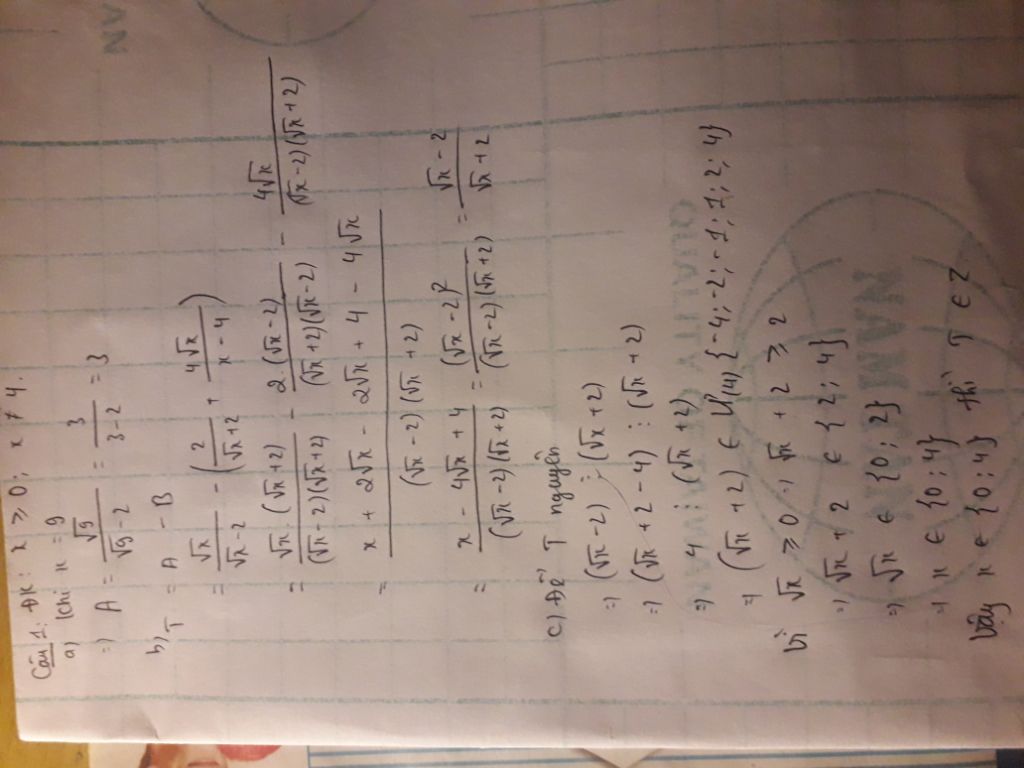 Câu 1: ĐK: x ≥ 0; x ≠ 4.
a) Khi x = 9
=> A = √9/(√9 - 2) = 3/(3 - 2) = 3
b) T = A - B
= √x/(√x - 2) - (2/(√x + 2) + 4√x/(x - 4))
= √x.(√x + 2)/((√x - 2)(√x + 2)) - 2(√x - 2)/((√x + 2)(√x - 2)) - 4√x/((√x - 2)(√x + 2))
= (x + 2√x - 2√x + 4 - 4√x)/((√x - 2)(√x + 2))
= (x - 4√x + 4)/((√x - 2)(√x + 2)) = (√x - 2)²/((√x - 2)(√x + 2)) = (√x - 2)/(√x + 2)
c) Để T nguyên
=> (√x - 2) ⋮ (√x + 2)
=> (√x + 2 - 4) ⋮ (√x + 2)
=> 4 ⋮ (√x + 2)
=> (√x + 2) ∈ Ư(4) {-4; -2; -1; 1; 2; 4}
Vì √x ≥ 0 => √x + 2 ≥ 2
=> √x + 2 ∈ {2; 4}
=> √x ∈ {0; 2}
=> x ∈ {0; 4}
Vậy x ∈ {0; 4} thì T ∈ Z